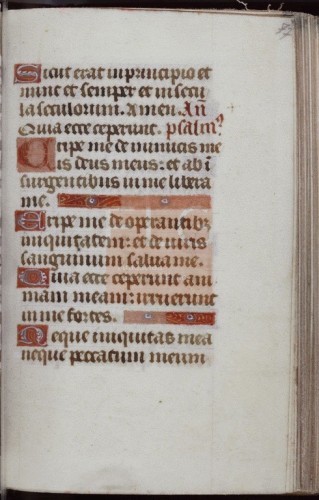 Sicut erat in principio et
nunc et semper et in secu
la seculorum. Amen. An̄
Quia ecce ceperunt. psalmꝰ
Eripe me de inimicis me
is deus meus: et ab ī
surgentibus in me libera
me.
Eripe me de operantibꝫ
iniquitatem: et de viris
sanguinum salua me.
Quia ecce ceperunt ani
mam meam: irruerunt
in me fortes.
Neque iniquitas mea
neque peccatum meum